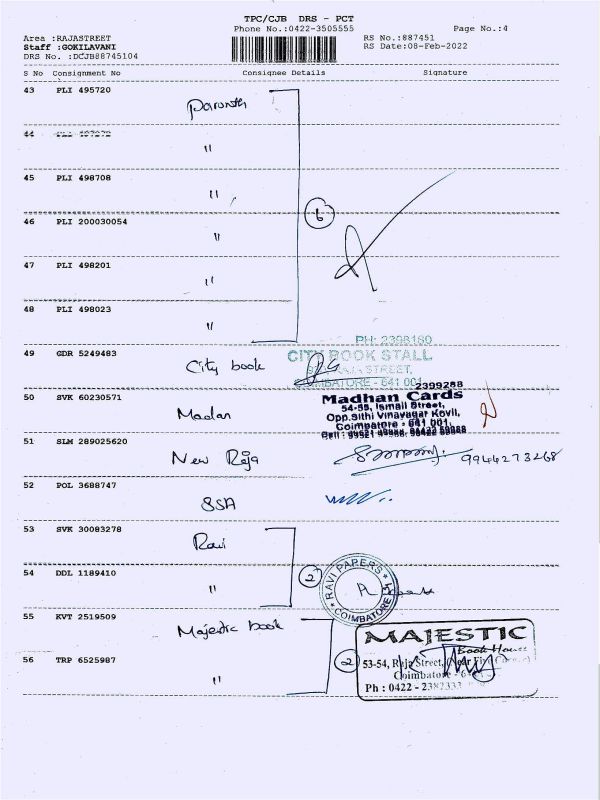 TPC/CJB DRS - PCT
Phone No.:0422-3505555
Page No.:4
Area :RAJASTREET
Staff :GOKILAVANI
DRS No. :DCJB88745104
RS No.:887451
RS Date:08-Feb-2022
S No Consignment No Consignee Details Signature
43 PLI 495720
44 PLI
"
45 PLI 498708
"
46 PLI 200030054
"
6
47 PLI 498201
"
48 PLI 498023
"
49 GDR 5249483
City book
PH: 2398180
CITY BOOK STALL
RAJA STREET,
COIMBATORE - 641 001
50 SVK 60230571
Madan
2399288
Madhan Cards
54-55, Ismail Street,
Opp.Sithi Vinayagar Kovil,
Coimbatore - 641 001.
51 SLM 289025620
New Raja
9944273268
52 POL 3688747
SSA
53 SVK 30083278
Ravi
54 DDL 1189410
"
2
RAVI PAPERS
COIMBATORE
55 KVT 2519509
Majestic book
56 TRP 6525987
"
2
MAJESTIC
Book House
53-54, Raja Street,
Coimbatore
Ph : 0422 - 2382333